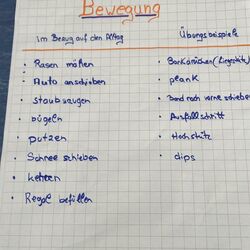 Bewegung
im Bezug auf den Alltag
Übungsbeispiele
Rasen mähen
Auto anschieben
staubsaugen
bügeln
putzen
Schnee schieben
kehren
Regal befüllen
plank
Band nach vorne schieben
Ausfallschritt
Hochstütz
dips